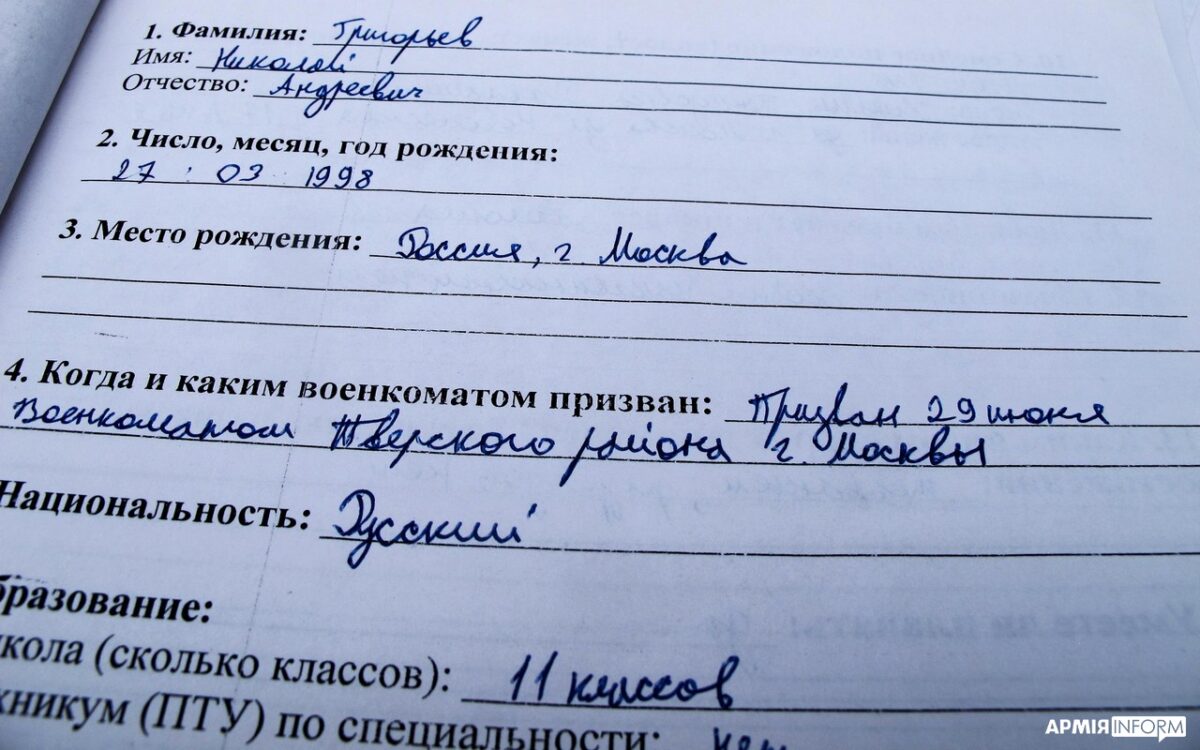 1. Фамилия: Григорьев
Имя: Николай
Отчество: Андреевич
2. Число, месяц, год рождения:
27 : 03 : 1998
3. Место рождения: Россия, г. Москва
4. Когда и каким военкоматом призван: Призван 29 июня
Военкоматом Тверского района г. Москвы
Национальность: Русский
бразование:
кола (сколько классов): 11 классов
хникум (ПТУ) по специальности: нет
АРМІЯINFORM